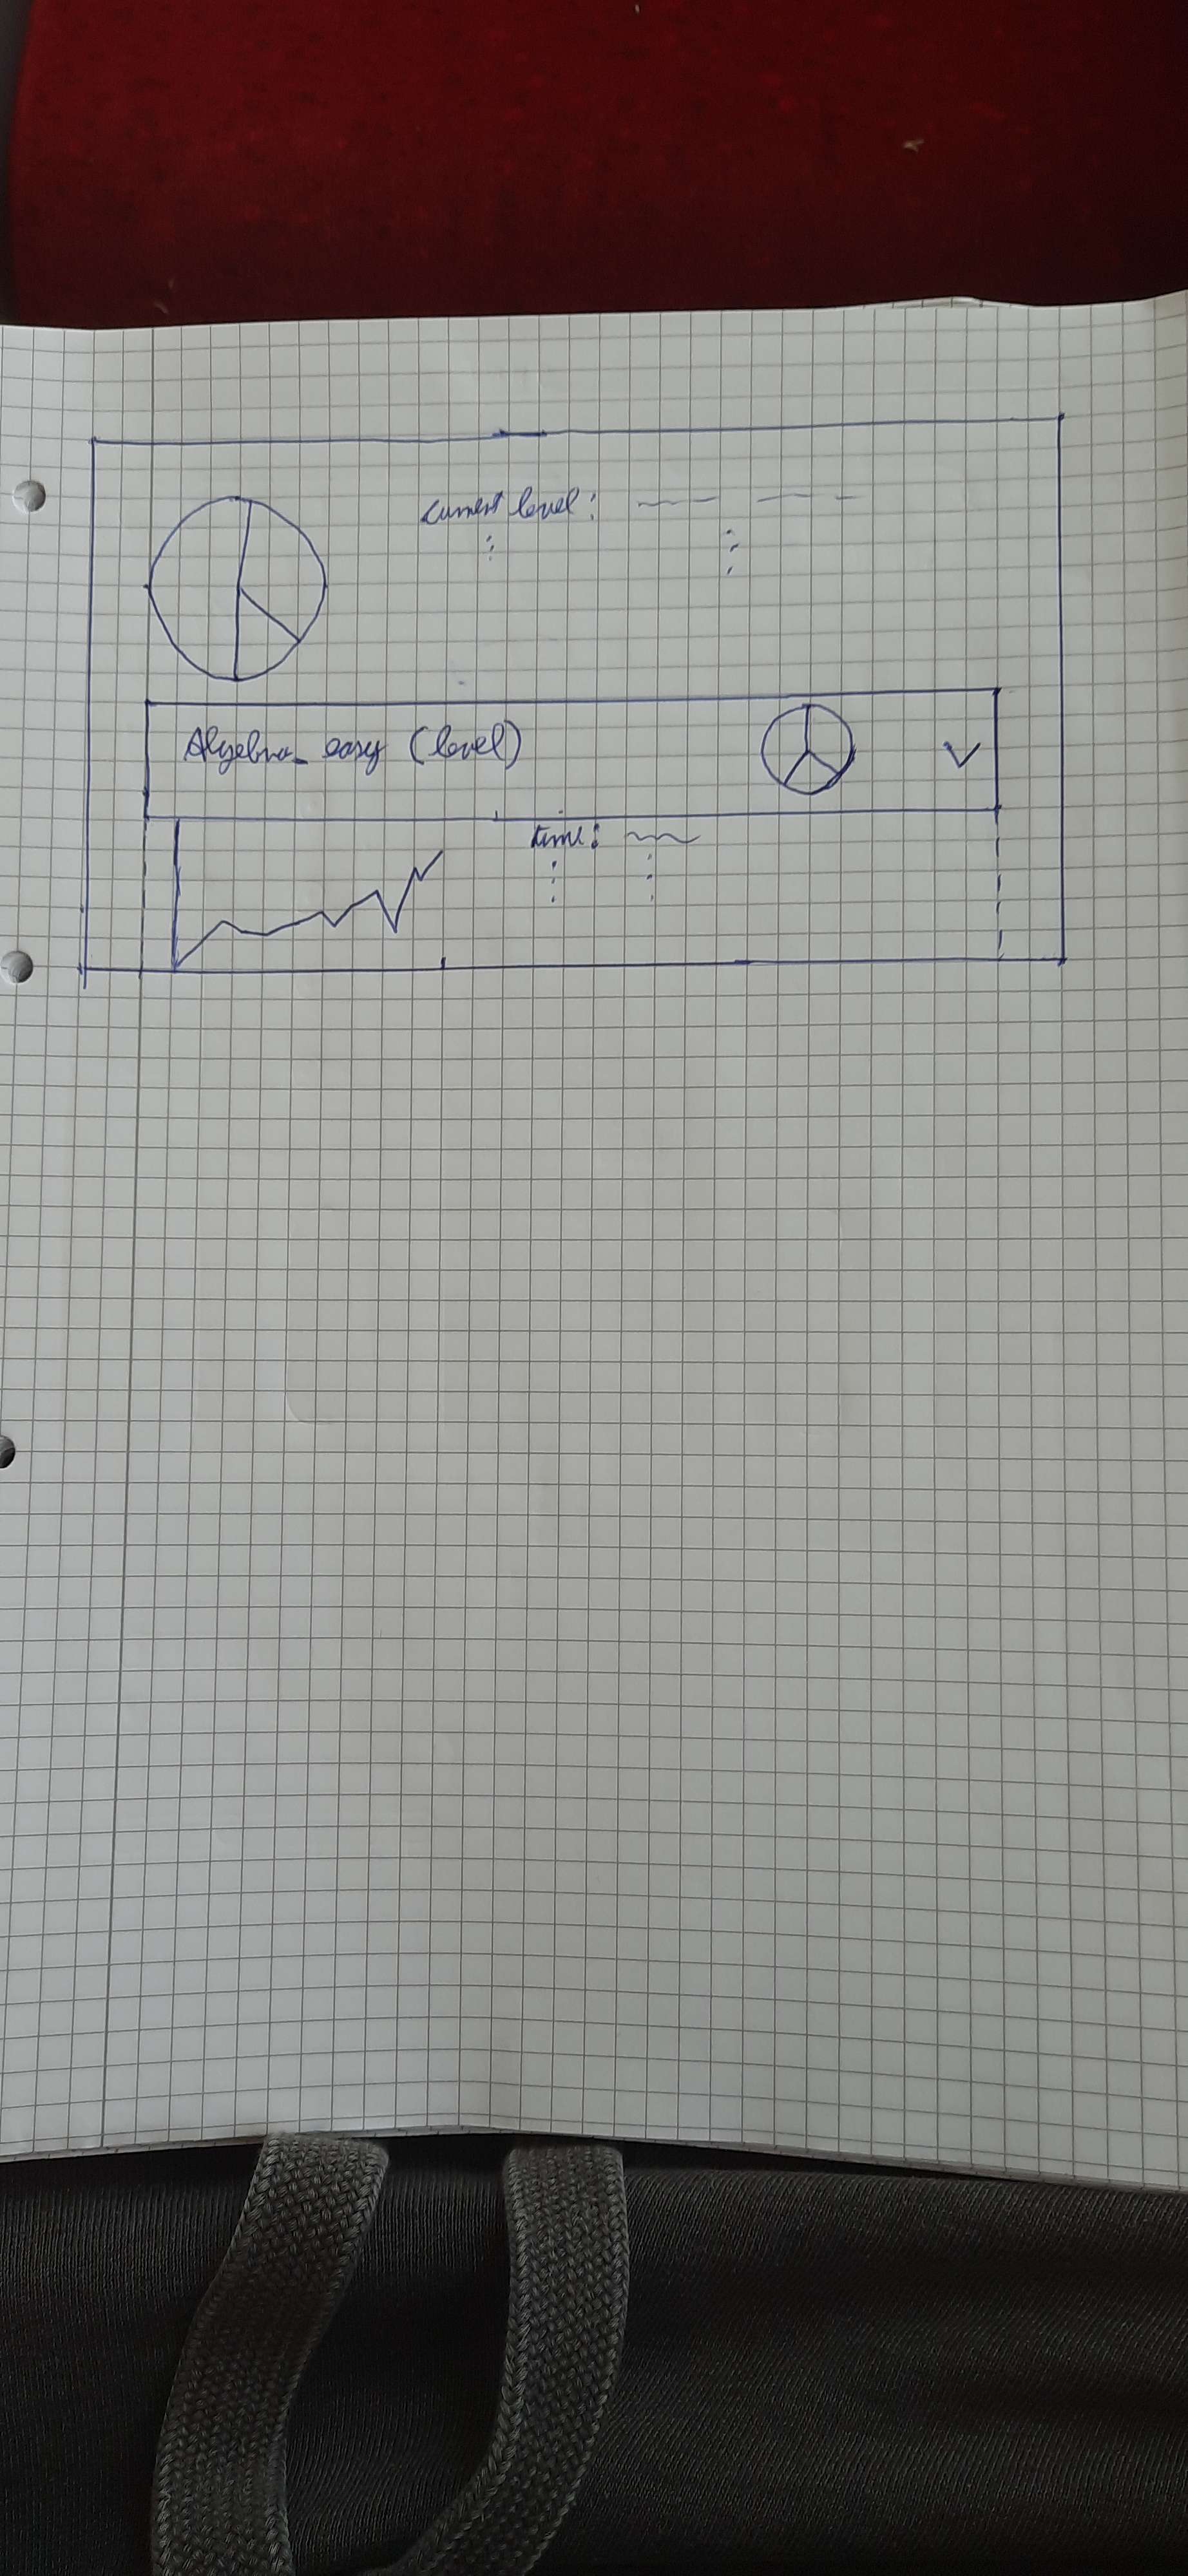 current level:
Algebra easy (level)
time: